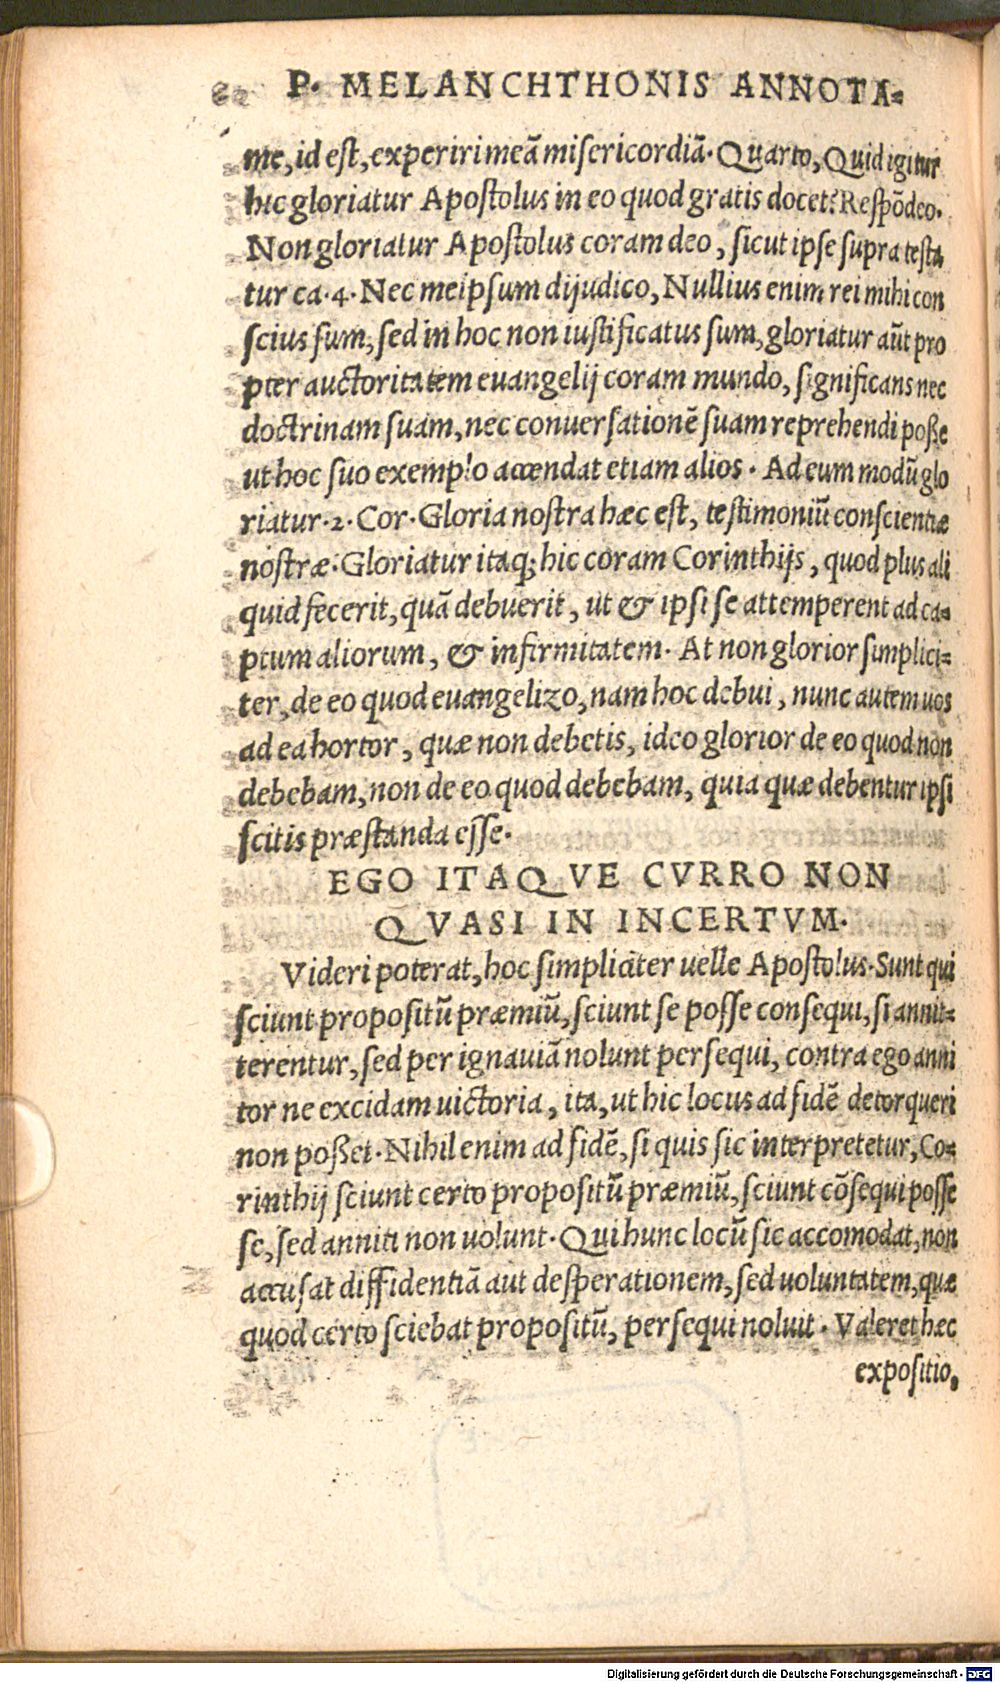 P. MELANCHTHONIS ANNOTA-
me, id est, experiri meã misericordiã. Quarto, Quid igitur
hic gloriatur Apostolus in eo quod gratis docet? Respõdeo.
Non gloriatur Apostolus coram deo, sicut ipse supra testa
tur ca. 4. Nec meipsum dijudico, Nullius enim rei mihi con
scius sum, sed in hoc non iustificatus sum, gloriatur aũt pro
pter auctoritatem euangelij coram mundo, significans nec
doctrinam suam, nec conuersationẽ suam reprehendi poße
ut hoc suo exemplo accendat etiam alios. Ad eum modũ glo
riatur. 2. Cor. Gloria nostra hæc est, testimoniũ conscientiæ
nostræ. Gloriatur itaq; hic coram Corinthijs, quod plus ali
quid fecerit, quã debuerit, ut & ipsi se attemperent ad ca-
ptum aliorum, & infirmitatem. At non glorior simplici-
ter, de eo quod euangelizo, nam hoc debui, nunc autem uos
ad ea hortor, quæ non debetis, ideo glorior de eo quod non
debebam, non de eo quod debebam, quia quæ debentur ipsi
scitis præstanda esse.
EGO ITAQVE CVRRO NON
QVASI IN INCERTVM.
Videri poterat, hoc simpliciter uelle Apostolus. Sunt qui
sciunt propositũ præmiũ, sciunt se posse consequi, si annit-
terentur, sed per ignauiã nolunt persequi, contra ego anni
tor ne excidam uictoria, ita, ut hic locus ad fidẽ detorqueri
non poßet. Nihil enim ad fidẽ, si quis sic interpretetur, Co-
rinthij sciunt certo propositũ præmiũ, sciunt cõsequi posse
se, sed anniti non uolunt. Qui hunc locũ sic accomodat, non
accusat diffidentiã aut desperationem, sed uoluntatem, quæ
quod certo sciebat propositũ, persequi noluit. Valeret hæc
expositio,
Digitalisierung gefördert durch die Deutsche Forschungsgemeinschaft - DFG